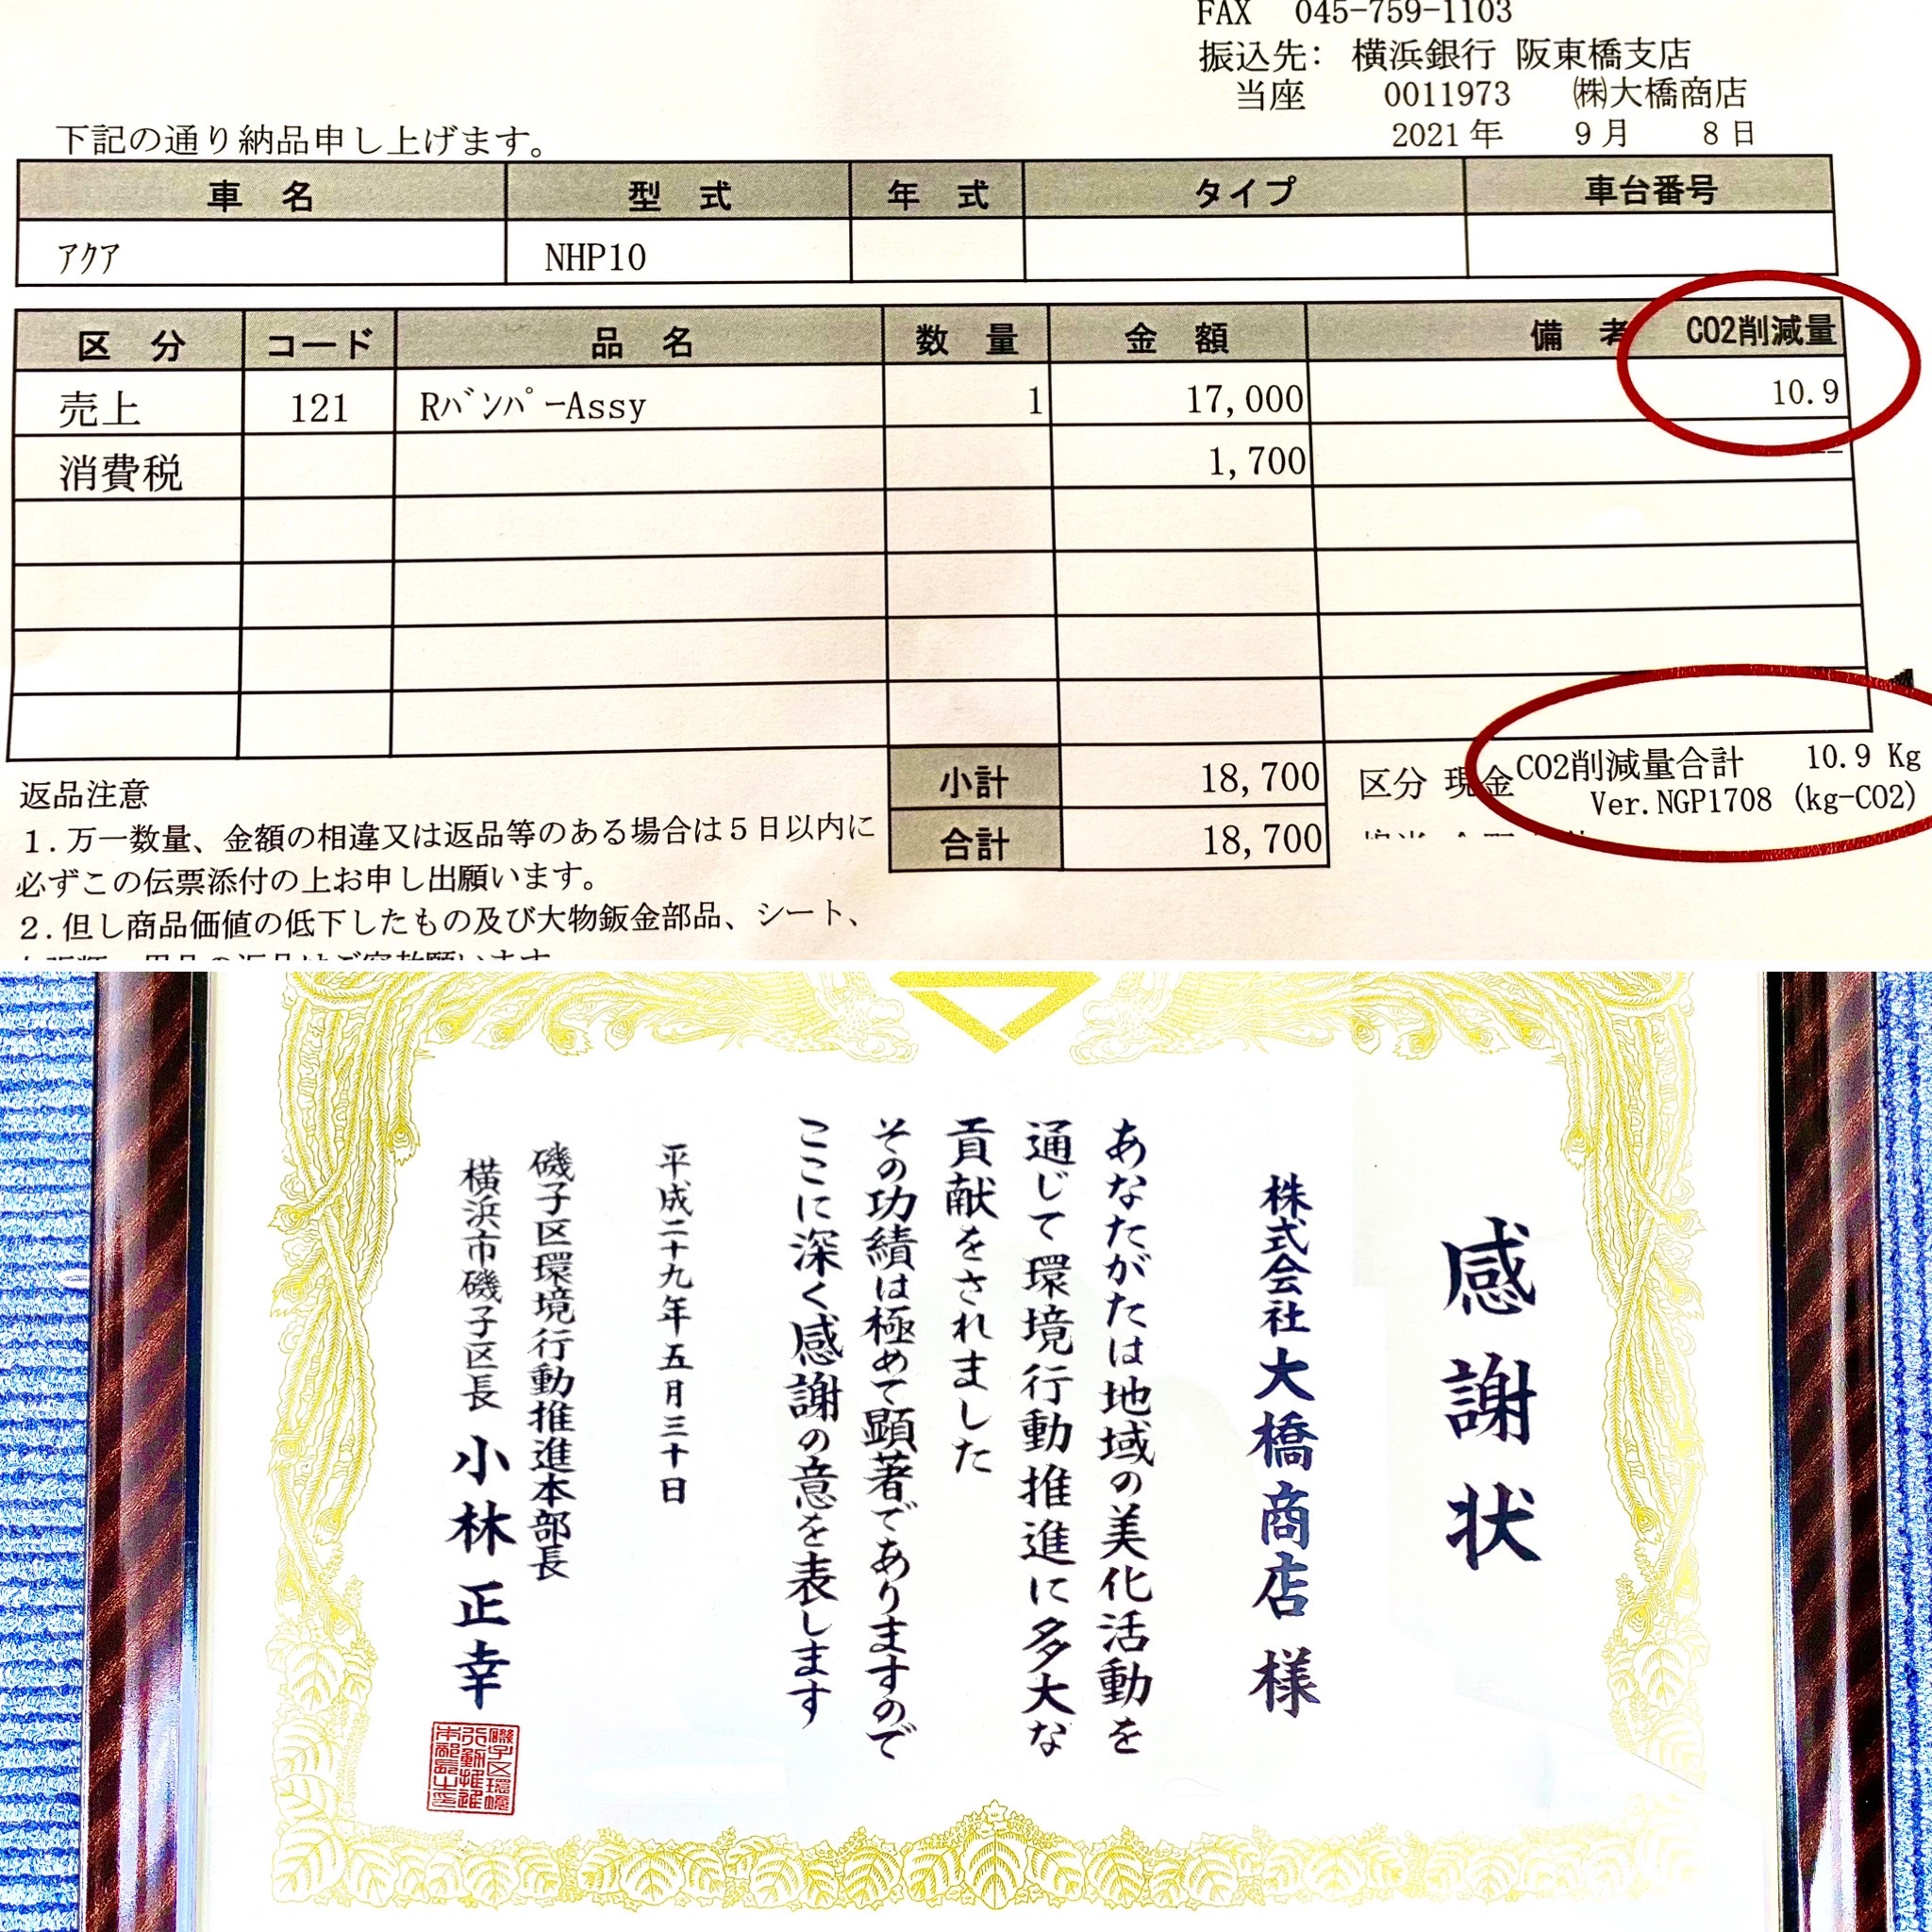 FAX 045-759-1103
振込先: 横浜銀行 阪東橋支店
当座 0011973 ㈱大橋商店
2021年 9月 8日
下記の通り納品申し上げます。
車 名 型 式 年 式 タイプ 車台番号
アクア NHP10
区 分 コード 品 名 数 量 金 額 備 考 CO2削減量
売上 121 RバンパーAssy 1 17,000 10.9
消費税 1,700
小計 18,700 区分 現金 CO2削減量合計 10.9 Kg
Ver.NGP1708 (kg-CO2)
合計 18,700
返品注意
1.万一数量、金額の相違又は返品等のある場合は5日以内に
必ずこの伝票添付の上お申し出願います。
2.但し商品価値の低下したもの及び大物鈑金部品、シート、
感謝状
株式会社大橋商店 様
あなたがたは地域の美化活動を
通じて環境行動推進に多大な
貢献をされました
その功績は極めて顕著でありますので
ここに深く感謝の意を表します
平成二十九年五月三十日
磯子区環境行動推進本部長
横浜市磯子区長 小林正幸